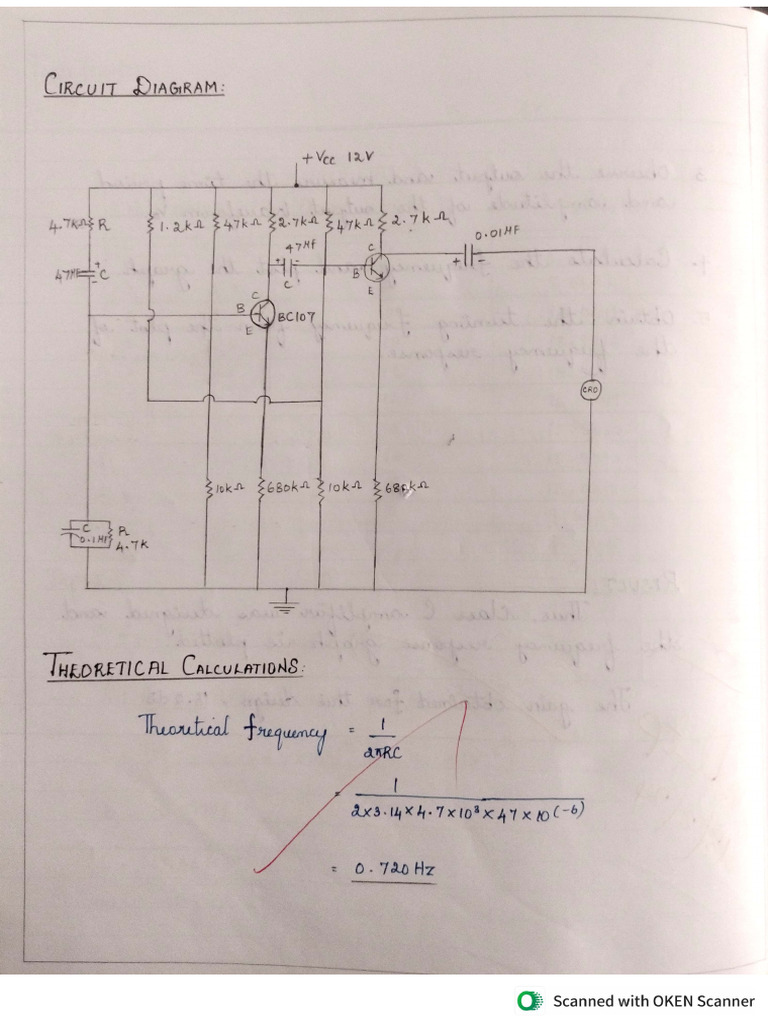 CIRCUIT DIAGRAM:
+Vcc 12V
4.7kΩ R 1.2kΩ 47kΩ 2.7kΩ 47kΩ 2.7kΩ
0.01Mf
47Mf
+ -
C
C
B
E
+ -
47Mf + - C
C
B
E
BC107
CRO
10kΩ 680kΩ 10kΩ 68 kΩ
C
0.1Mf
R
4.7K
THEORETICAL CALCULATIONS:
Theoretical frequency = 1
2πRC
= 1
2x3.14x4.7x10³x47x10(-6)
= 0.720 Hz
Scanned with OKEN Scanner